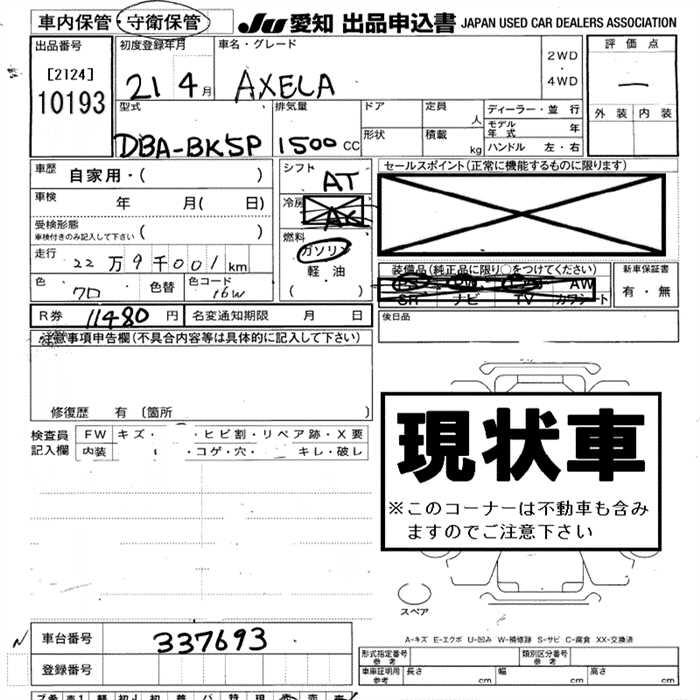 車内保管・守衛保管 JU愛知 出品申込書 JAPAN USED CAR DEALERS ASSOCIATION
出品番号 初度登録年月 車名・グレード 2WD・4WD 評価点
[2124] 10193 21 4月 AXELA 一
外装 内装
型式 排気量 ドア 定員 人 ディーラー・並行
モデル年式 年
DBA-BK5P 1500cc 形状 積載 kg ハンドル 左・右
車歴 自家用・( ) シフト AT セールスポイント(正常に機能するものに限ります)
車検 年 月( 日) 冷房
受検形態 車検付きのみ記入して下さい ( ) 燃料 ガソリン
走行 22万9千001km 軽油
装備品(純正品に限り○をつけてください) 新車保証書
AW 有・無
SR ナビ TV カワシート
色 クロ 色替 色コード 16W ( )
R券 11480円 名変通知期限 月 日 後日品
注意事項申告欄(不具合内容等は具体的に記入して下さい)
修復歴 有 〔箇所 〕
検査員記入欄 FW キズ・ ・ヒビ割・リペア跡・X要
内装 ・コゲ・穴・ キレ・破レ
現状車
※このコーナーは不動車も含み
ますのでご注意下さい
スペア
A-キズ E-エクボ U-凹み W-補修跡 S-サビ C-腐食 XX-交換済
車台番号 337693
登録番号
形式指定番号 参考 類別区分番号 参考
車庫証明用 参考 長さ cm 幅 cm 高さ cm